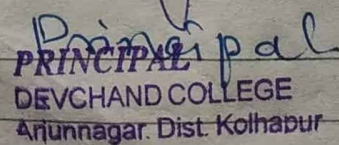 Principal
PRINCIPAL
DEVCHAND COLLEGE
Arjunnagar. Dist. Kolhapur